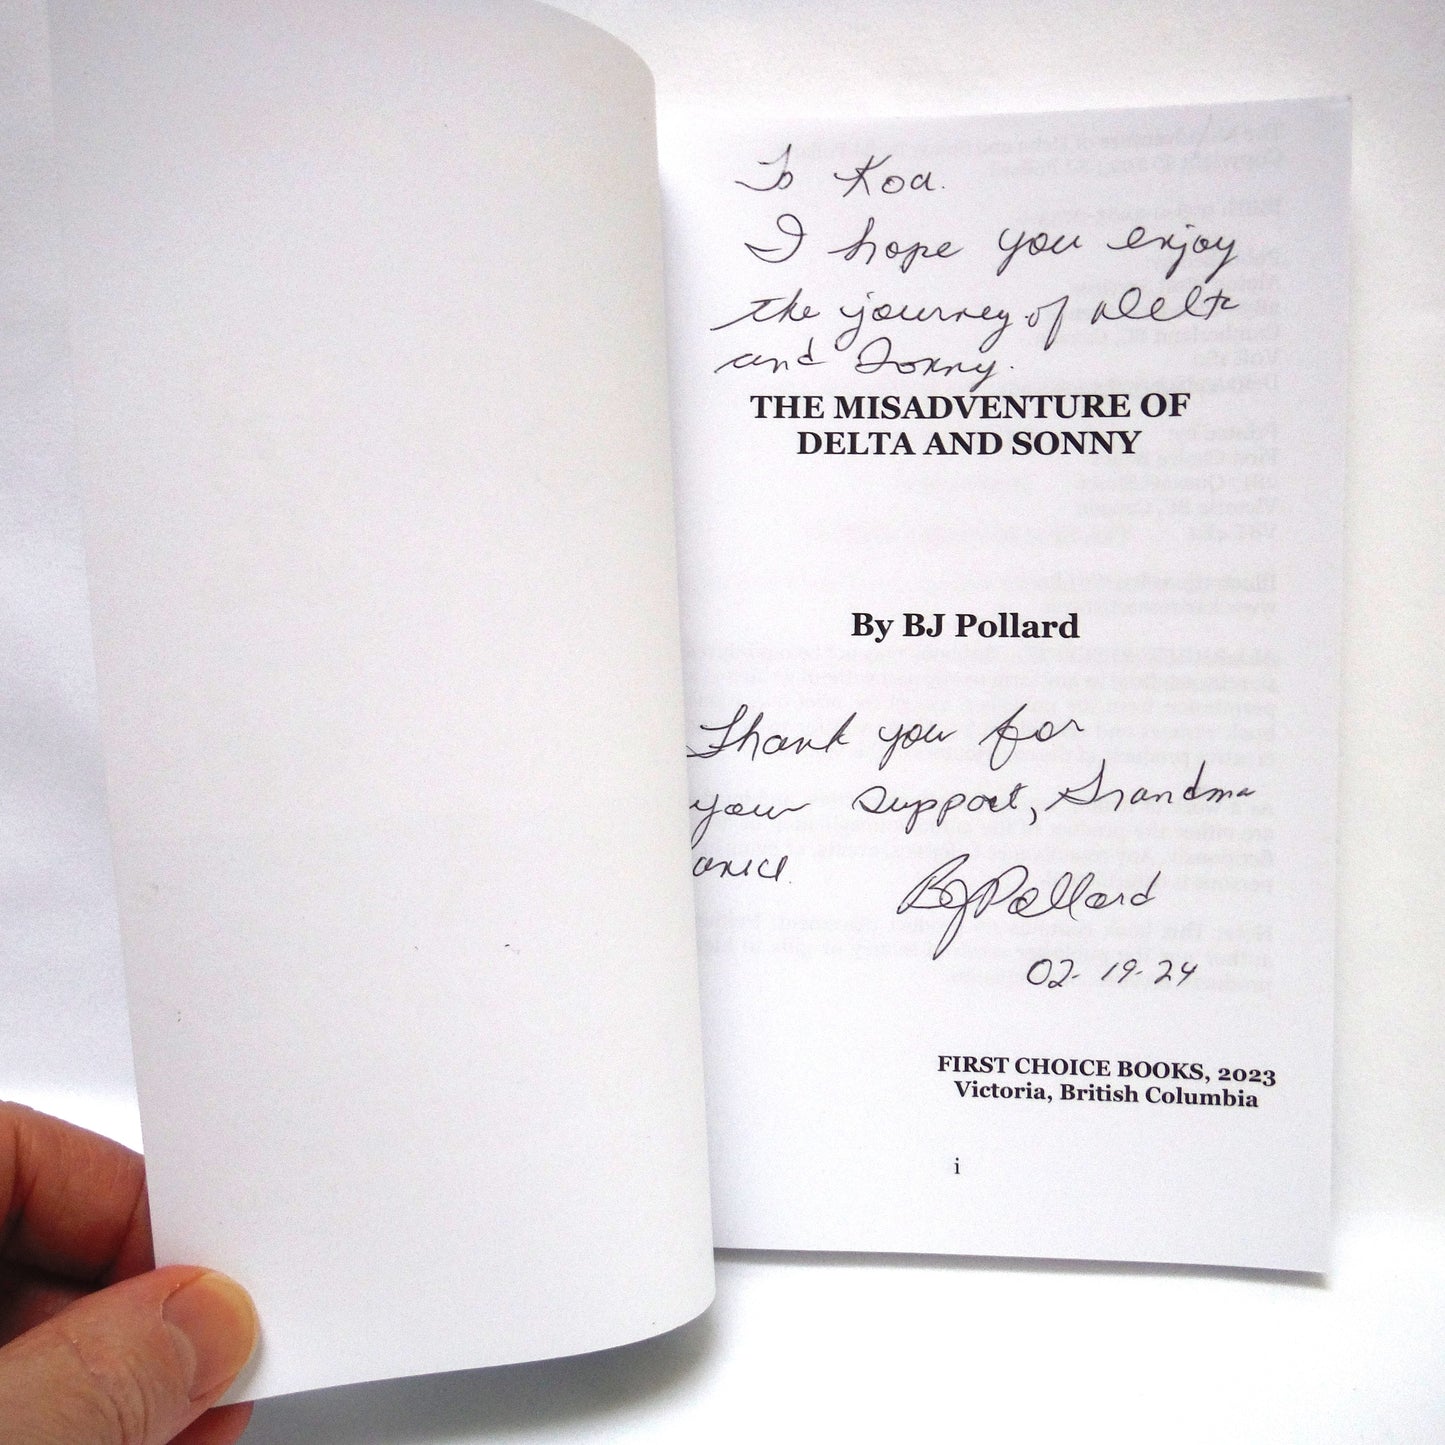 To Koa.
I hope you enjoy
the journey of Delta
and Sonny.
THE MISADVENTURE OF
DELTA AND SONNY
By BJ Pollard
Thank you for
your support, Grandma
BJ Pollard
02-19-24
FIRST CHOICE BOOKS, 2023
Victoria, British Columbia
i